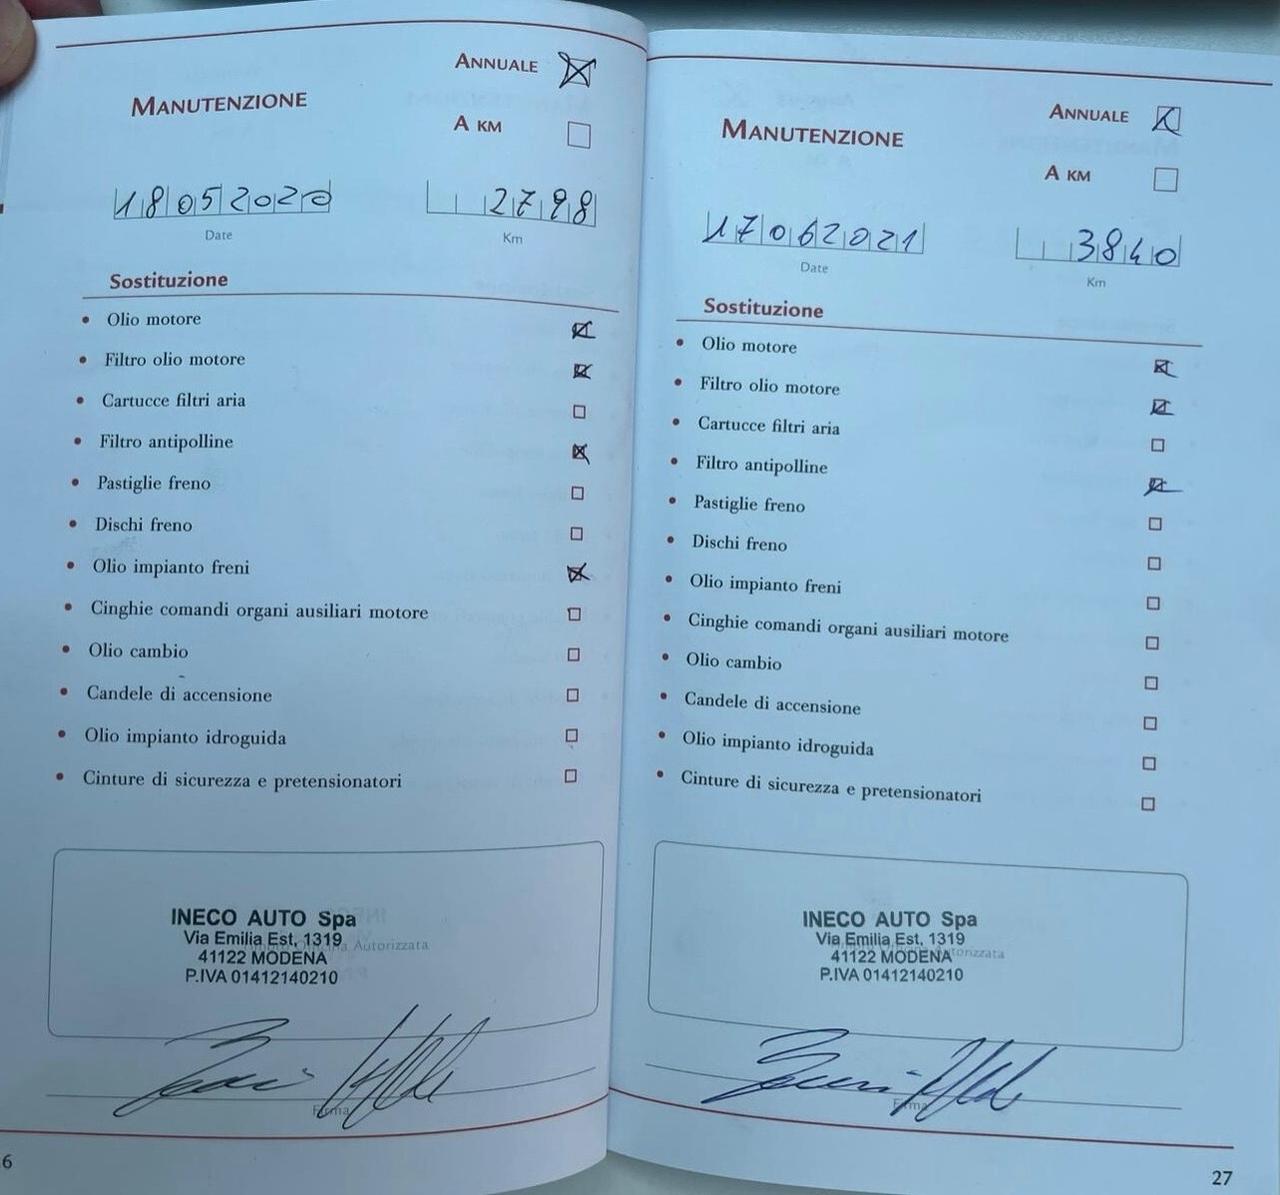 ANNUALE
MANUTENZIONE
A KM
18052020
2798
Date
Km
Sostituzione
• Olio motore
• Filtro olio motore
• Cartucce filtri aria
• Filtro antipolline
• Pastiglie freno
• Dischi freno
• Olio impianto freni
• Cinghie comandi organi ausiliari motore
• Olio cambio
• Candele di accensione
• Olio impianto idroguida
• Cinture di sicurezza e pretensionatori
INECO AUTO Spa
Via Emilia Est, 1319
Officina Autorizzata
41122 MODENA
P.IVA 01412140210
Firma
6
ANNUALE
MANUTENZIONE
A KM
17062021
3840
Date
Km
Sostituzione
• Olio motore
• Filtro olio motore
• Cartucce filtri aria
• Filtro antipolline
• Pastiglie freno
• Dischi freno
• Olio impianto freni
• Cinghie comandi organi ausiliari motore
• Olio cambio
• Candele di accensione
• Olio impianto idroguida
• Cinture di sicurezza e pretensionatori
INECO AUTO Spa
Via Emilia Est, 1319
Officina Autorizzata
41122 MODENA
P.IVA 01412140210
Firma
27